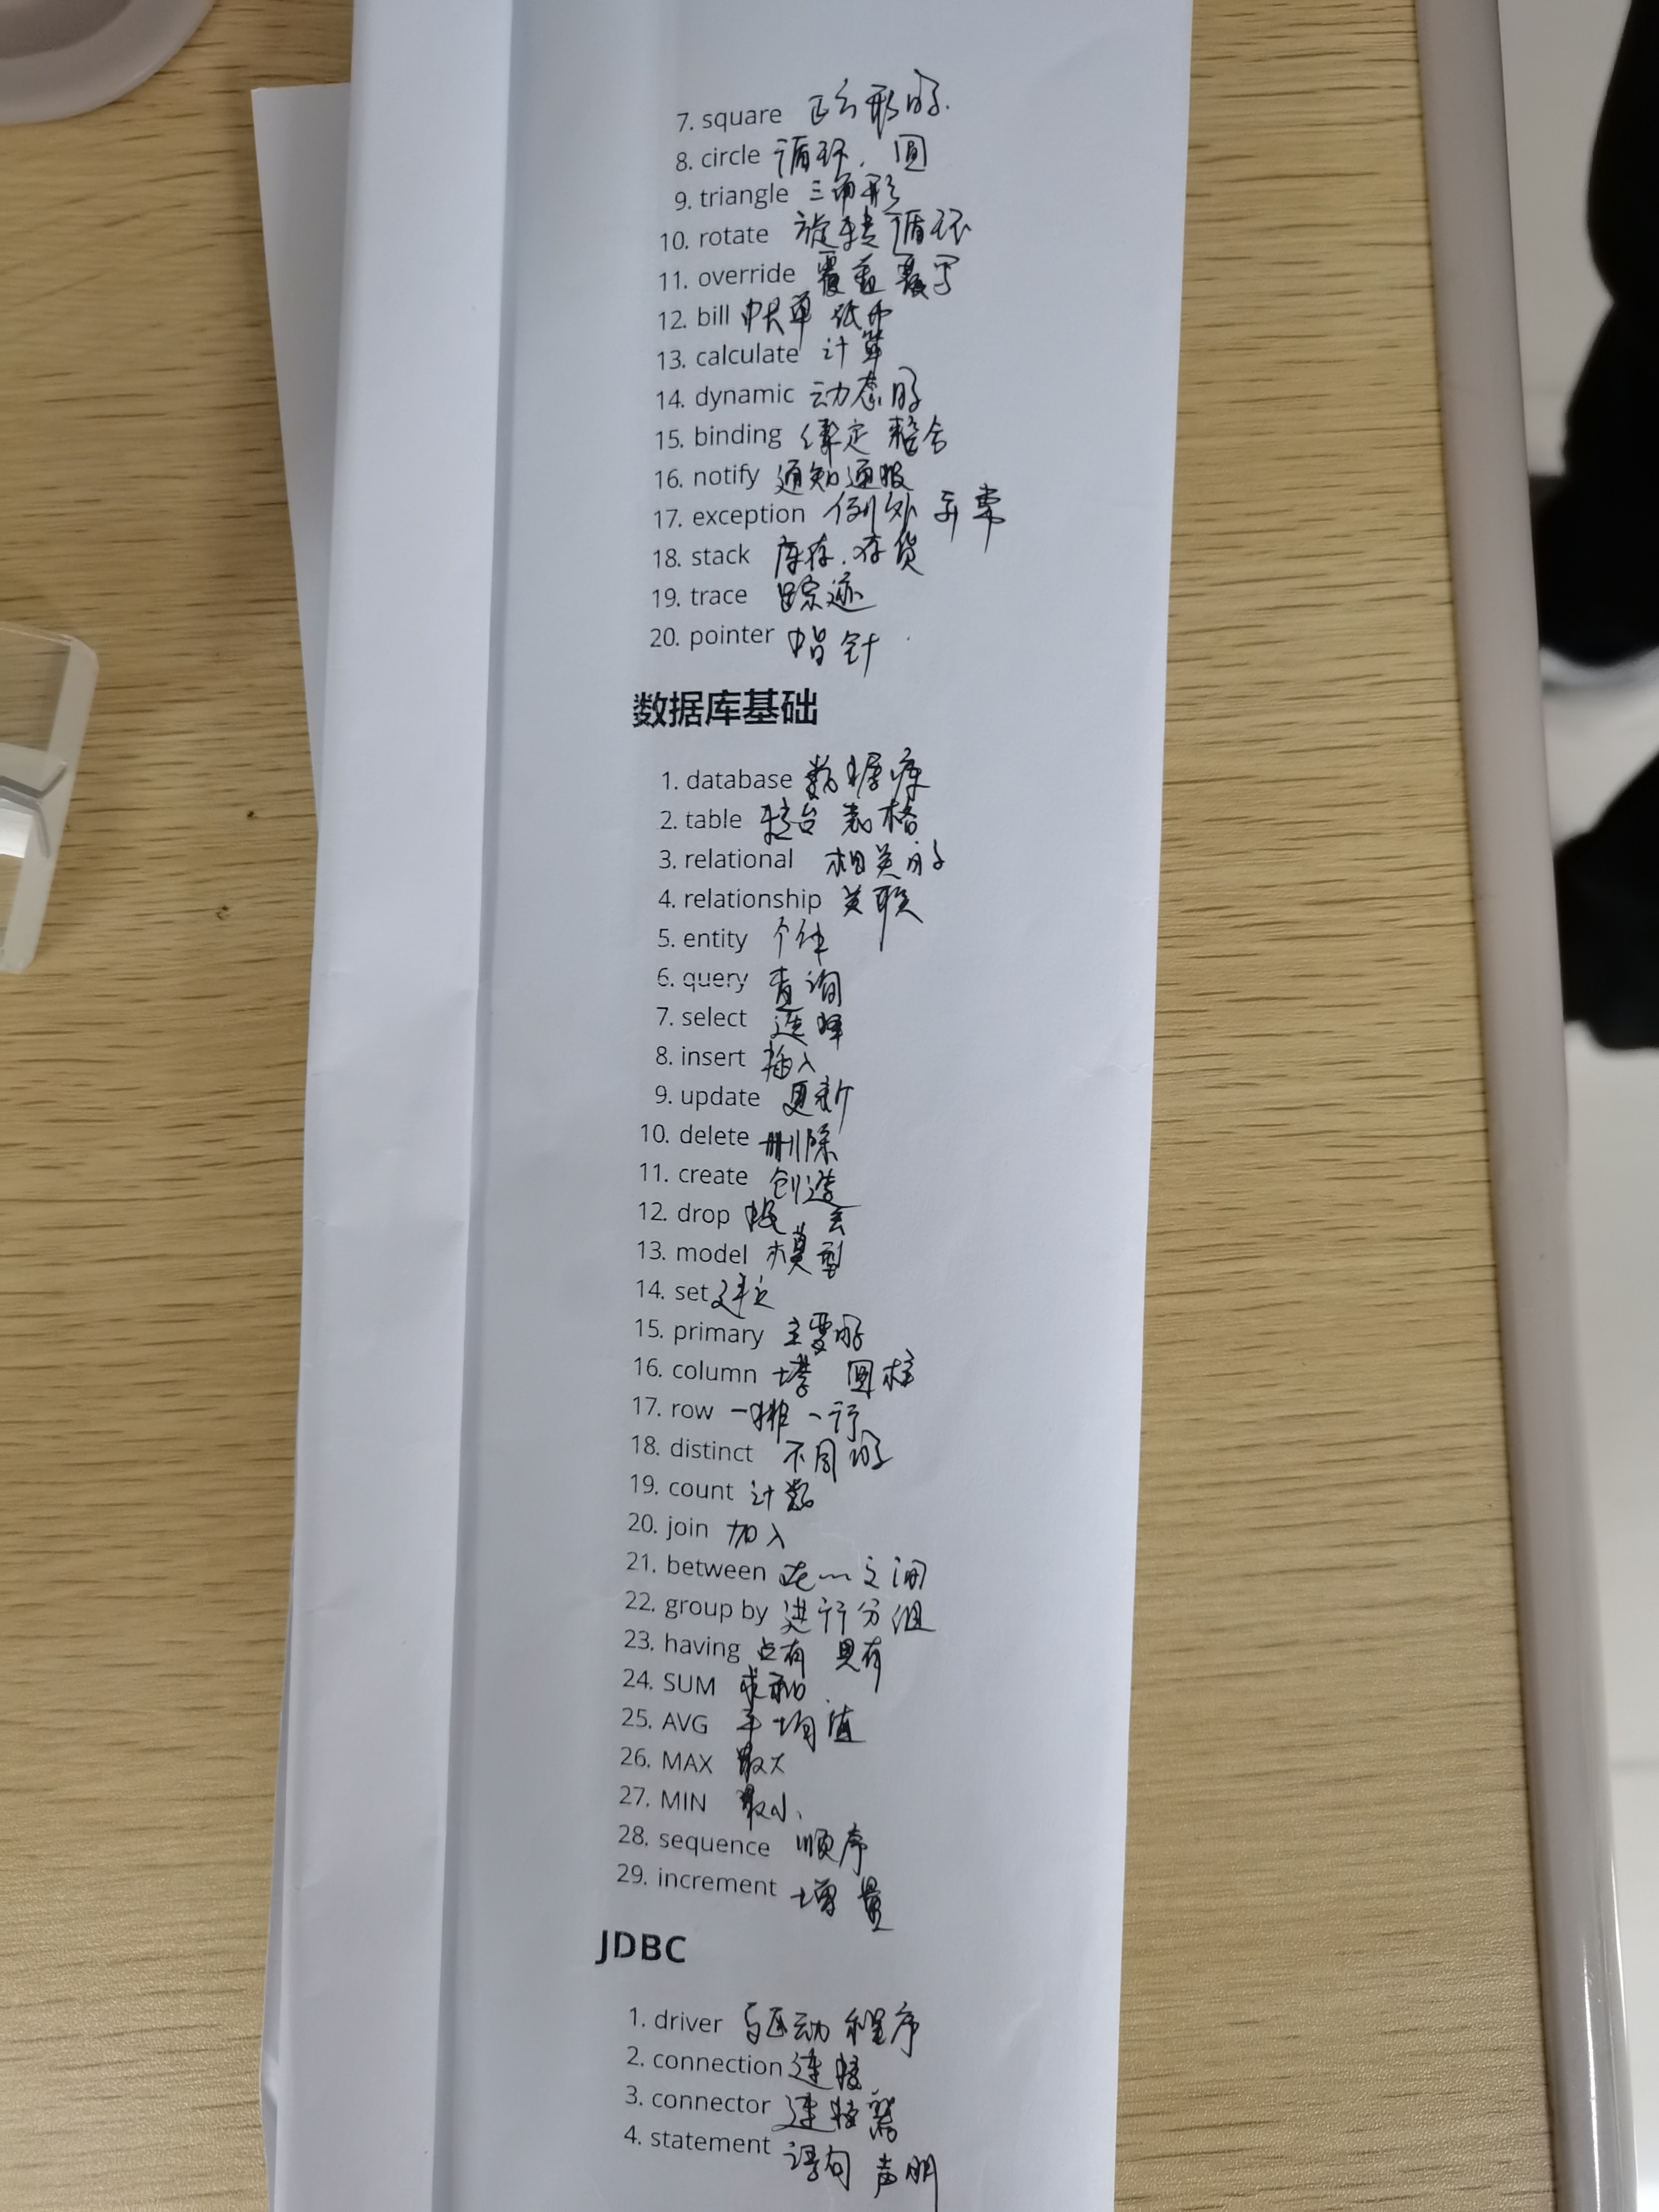 7. square 正方形的.
8. circle 循环, 圆
9. triangle 三角形
10. rotate 旋转 循环
11. override 覆盖 覆写
12. bill 帐单 纸币
13. calculate 计算
14. dynamic 动态的
15. binding 绑定 整合
16. notify 通知 通报
17. exception 例外 异常
18. stack 库存, 存货
19. trace 踪迹
20. pointer 指针
数据库基础
1. database 数据库
2. table 表格
3. relational 相关的
4. relationship 关联
5. entity 个体
6. query 查询
7. select 选择
8. insert 插入
9. update 更新
10. delete 删除
11. create 创造
12. drop
13. model 模型
14. set 建立
15. primary 主要的
16. column 塔 圆柱
17. row 一排 一行
18. distinct 不同的
19. count 计数
20. join 加入
21. between 在…之间
22. group by 进行分组
23. having 占有 具有
24. SUM 求和
25. AVG 平均值
26. MAX 最大
27. MIN 最小
28. sequence 顺序
29. increment 增量
JDBC
1. driver 驱动程序
2. connection 连接
3. connector 连接器
4. statement 语句 声明